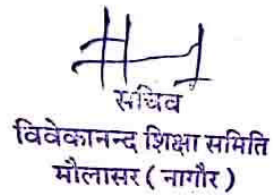 सचिव
विवेकानन्द शिक्षा समिति
मौलासर ( नागौर )